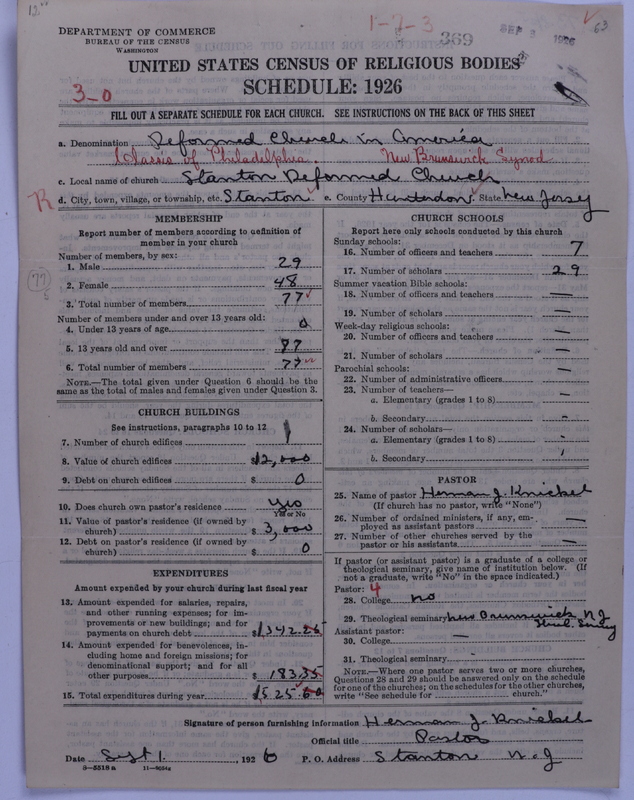 12.00
1-7-3
369
SEP 3 1926
63
DEPARTMENT OF COMMERCE
BUREAU OF THE CENSUS
WASHINGTON
UNITED STATES CENSUS OF RELIGIOUS BODIES
SCHEDULE: 1926
3-0
FILL OUT A SEPARATE SCHEDULE FOR EACH CHURCH. SEE INSTRUCTIONS ON THE BACK OF THIS SHEET
a. Denomination Reformed Church in America
Classis of Philadelphia. New Brunswick Synod
c. Local name of church Stanton Reformed Church
R d. City, town, village, or township, etc. Stanton e. County Hunterdon State New Jersey
MEMBERSHIP
Report number of members according to definition of
member in your church
Number of members, by sex:
1. Male 29
2. Female 48
3. Total number of members 77
Number of members under and over 13 years old:
4. Under 13 years of age 0
5. 13 years old and over 77
6. Total number of members 77
NOTE.—The total given under Question 6 should be the
same as the total of males and females given under Question 3.
CHURCH BUILDINGS
See instructions, paragraphs 10 to 12
7. Number of church edifices 1
8. Value of church edifices $12,000
9. Debt on church edifices $ 0
10. Does church own pastor's residence Yes
Yes or No
11. Value of pastor's residence (if owned by
church) $ 3,000
12. Debt on pastor's residence (if owned by
church) $ 0
EXPENDITURES
Amount expended by your church during last fiscal year
13. Amount expended for salaries, repairs,
and other running expenses; for im-
provements or new buildings; and for
payments on church debt $1342.25
14. Amount expended for benevolences, in-
cluding home and foreign missions; for
denominational support; and for all
other purposes 183.35
15. Total expenditures during year $1525.60
CHURCH SCHOOLS
Report here only schools conducted by this church
Sunday schools:
16. Number of officers and teachers 7
17. Number of scholars 29
Summer vacation Bible schools:
18. Number of officers and teachers —
19. Number of scholars —
Week-day religious schools:
20. Number of officers and teachers —
21. Number of scholars —
Parochial schools:
22. Number of administrative officers —
23. Number of teachers—
a. Elementary (grades 1 to 8) —
b. Secondary -
24. Number of scholars—
a. Elementary (grades 1 to 8) -
b. Secondary
PASTOR
25. Name of pastor Herman J. Knickel
(If church has no pastor, write "None")
26. Number of ordained ministers, if any, em-
ployed as assistant pastors —
27. Number of other churches served by the
pastor or his assistants —
If pastor (or assistant pastor) is a graduate of a college or
theological seminary, give name of institution below. (If
not a graduate, write "No" in the space indicated.)
Pastor: 4
28. College no
29. Theological seminary New Brunswick NJ
Assistant pastor:
30. College —
31. Theological seminary —
NOTE.—Where one pastor serves two or more churches,
Questions 28 and 29 should be answered only on the schedule
for one of the churches; on the schedules for the other churches,
write "See schedule for church."
Signature of person furnishing information Herman J. Knickel
Official title Pastor
Date Sept 1. 1926 P. O. Address Stanton N.J
8—5518a 11—9054a